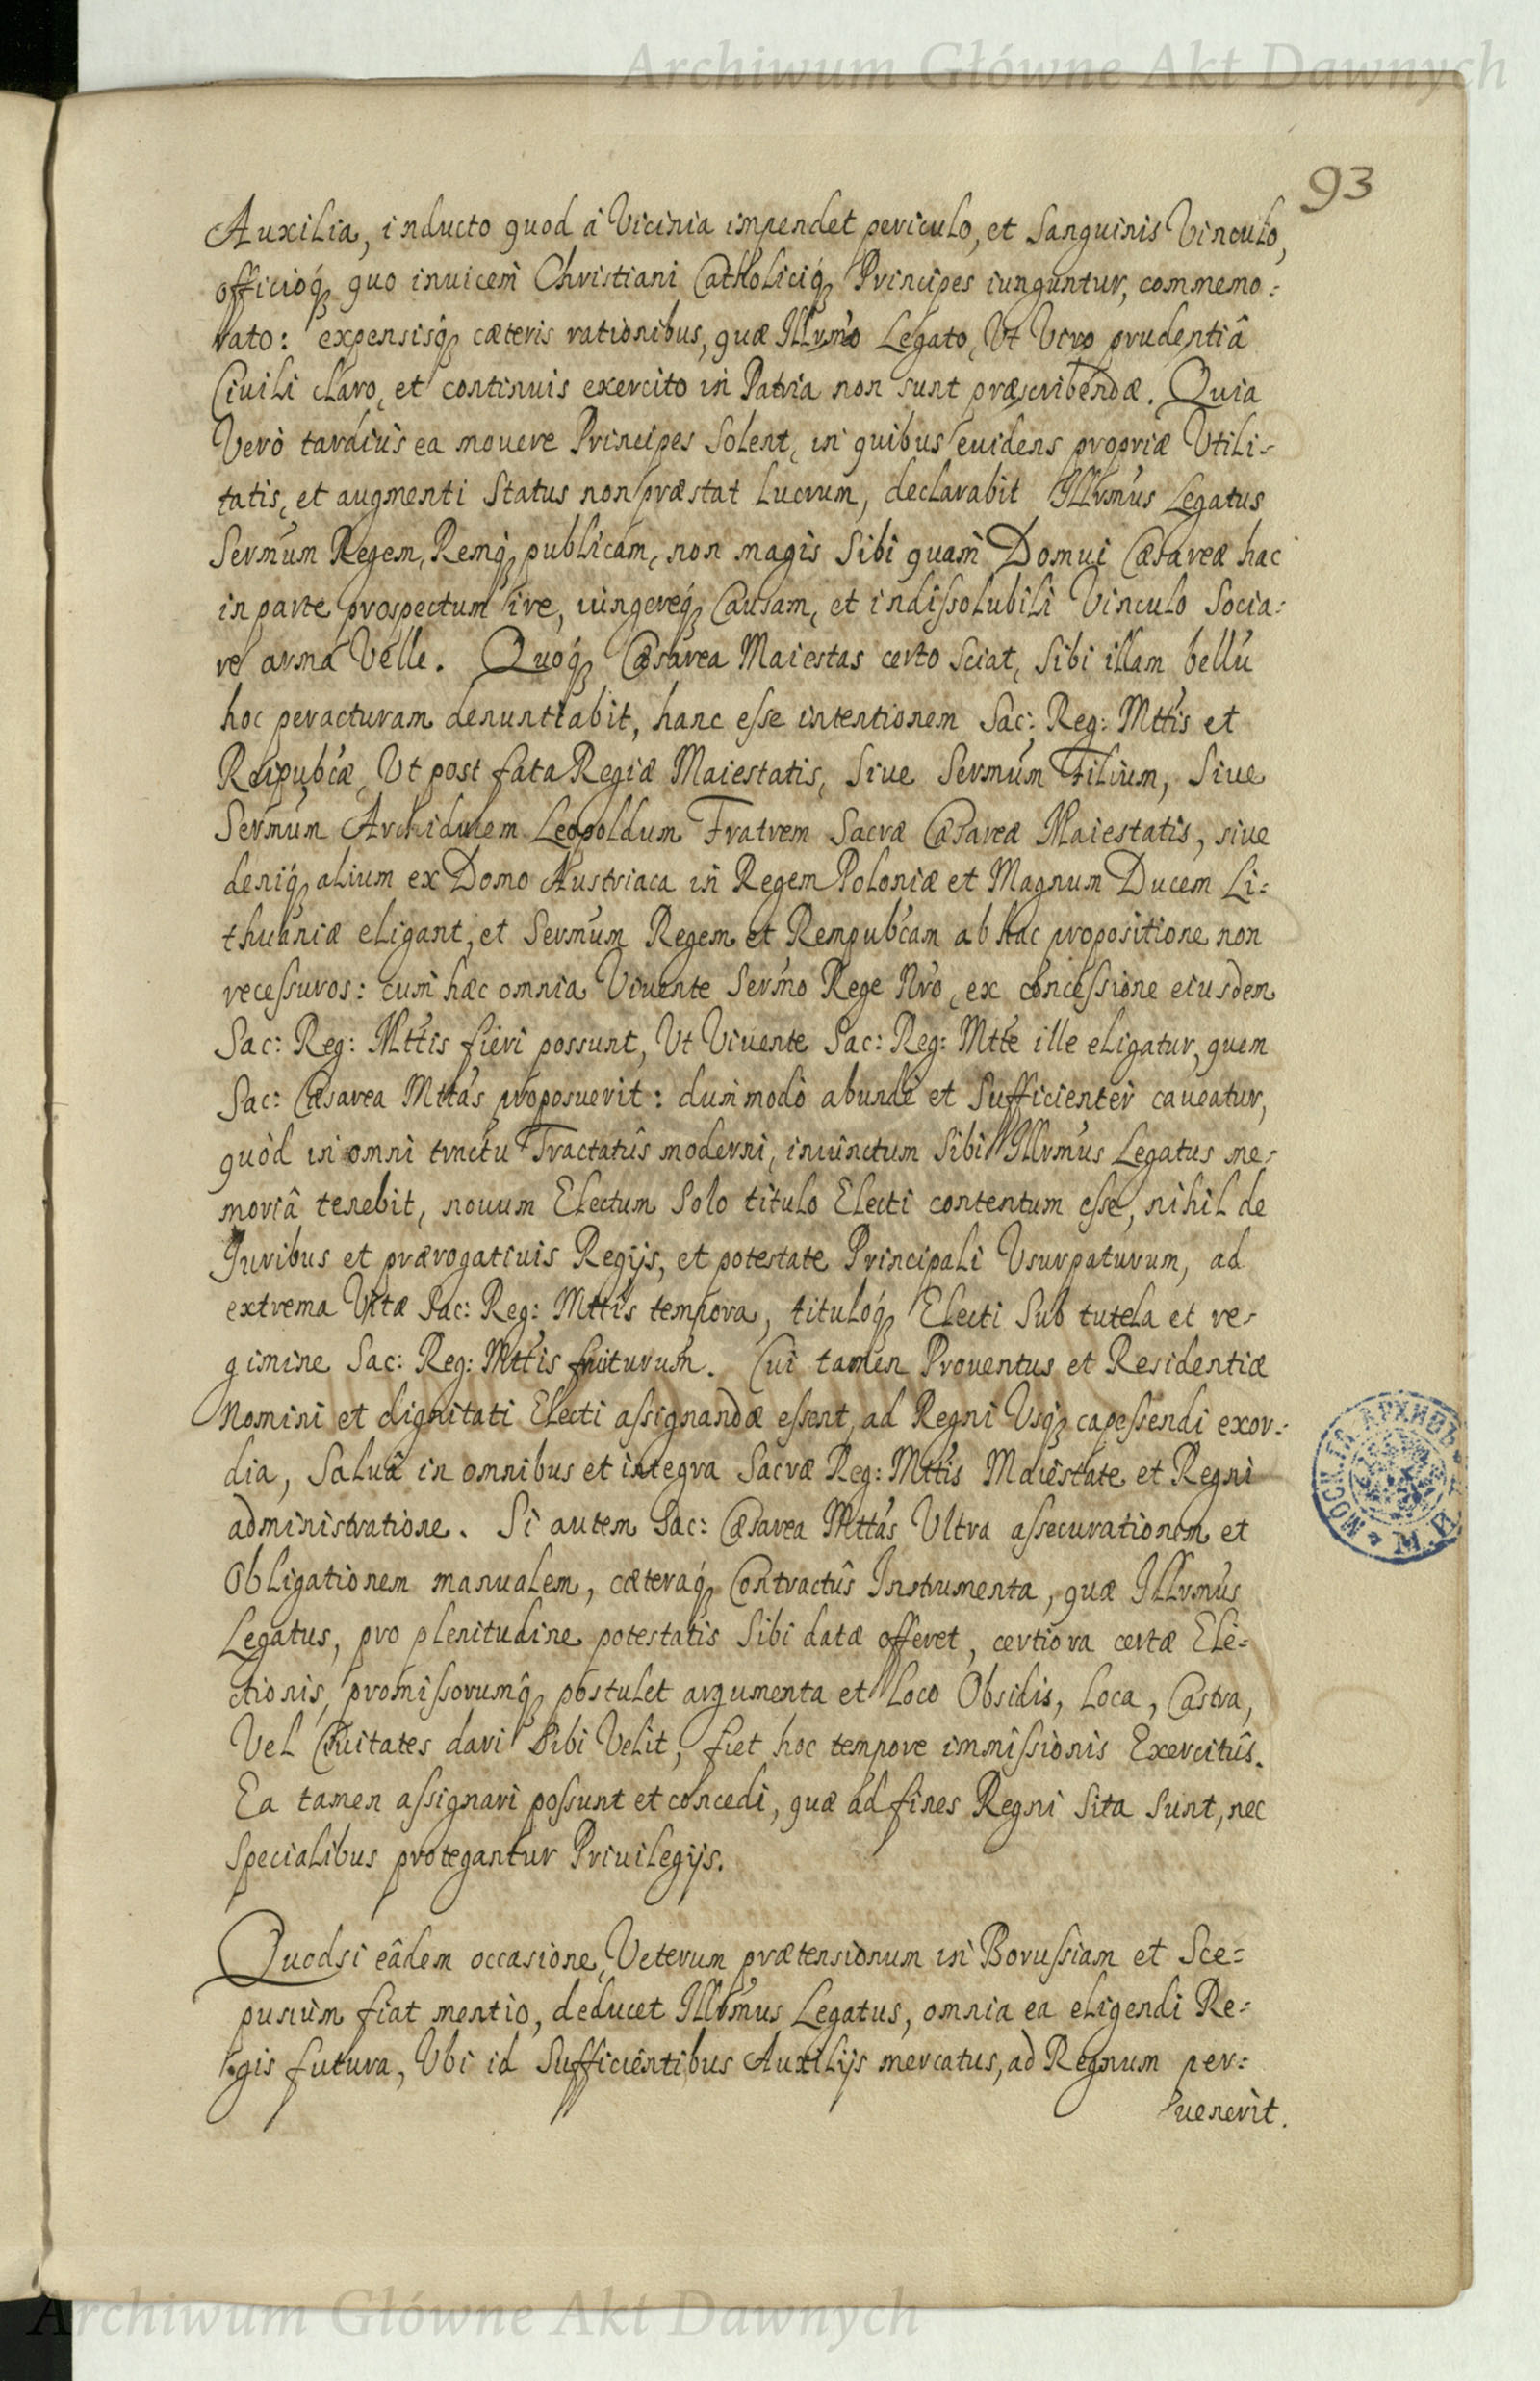 Archiwum Główne Akt Dawnych
93
Auxilia, inducto quod à Vicinia impendet periculo, et Sanguinis Vinculo,
officioq́ꝫ quo inuicem Christiani Catholiciq́ꝫ Principes iunguntur, commemo:
rato: expensisq́ꝫ cæteris rationibus, quæ Illr̃mo Legato, Ut Viro prudentiâ
Ciuili claro, et continuis exercito in Patria non sunt præscribendæ. Quia
Verò tardius ea mouere Principes Solent, in quibus euidens propriæ Utili-
tatis, et augmenti Status non præstat lucrum, declarabit Illr̃mus Legatus
Serm̃um Regem, Remq́ꝫ publicam, non magis Sibi quam Domui Cæsareæ hac
in parte prospectum ire, iungereq́ꝫ Causam, et indissolubili Vinculo Socia:
re arma Velle. Quoq́ꝫ Cæsarea Maiestas certo Sciat, Sibi illam bellũ
hoc peracturam denuntiabit, hanc esse intentionem Sac: Reg: Mttis et
Reipub́cæ, Ut post fata Regiæ Maiestatis, Siue Serm̃um Filium, Siue
Serm̃um Archiducem Leopoldum Fratrem Sacræ Cæsareæ Maiestatis, siue
deniq́ꝫ alium ex Domo Austriaca in Regem Poloniæ et Magnum Ducem Li:
thuaniæ eligant, et Serm̃um Regem et Rempub́cam ab hac propositione non
recessuros: cum hæc omnia Viuente Serm̃o Rege Nr̃o, ex concessione eiusdem
Sac: Reg: Mttis fieri possunt, Ut Viuente Sac: Reg: Mtte ille eligatur, quem
Sac: Cæsarea Mttas proposuerit: dummodo abundè et Sufficienter caueatur,
quòd in omni tractu Tractatûs moderni, iniunctum Sibi Illr̃mus Legatus me-
moriâ tenebit, nouum Electum Solo titulo Electi contentum esse, nihil de
Iuribus et prærogatiuis Regijs, et potestate Principali Usurpaturum, ad
extrema Vitæ Sac: Reg: Mttis tempora, tituloq́ꝫ Electi Sub tutela et re-
gimine Sac: Reg: Mttis fruiturum. Cui tamen Prouentus et Residentiæ
Nomini et dignitati Electi assignandæ essent, ad Regni Usq́ꝫ capessendi exor-
dia, Saluâ in omnibus et integra Sacræ Reg: Mttis Maiestate et Regni
administratione. Si autem Sac: Cæsarea Mttas Ultra assecurationem et
Obligationem manualem, cæteraq́ꝫ Contractûs Instrumenta, quæ Illr̃mus
Legatus, pro plenitudine potestatis Sibi datæ offeret, certiora certæ Ele-
ctionis, promissorumq́ꝫ postulet argumenta et loco Obsidis, Loca, Castra,
Vel Ciuitates dari Sibi Velit, fiet hoc tempore immissionis Exercitûs.
Ea tamen assignari possunt et concedi, quæ ad fines Regni Sita Sunt, nec
Specialibus protegantur Priuilegijs.
Quodsi eâdem occasione, Veterum prætensionum in Borussiam et Sce-
pusium fiat mentio, deducet Illr̃mus Legatus, omnia ea eligendi Re-
gis futura, Ubi id Sufficientibus Auxilijs mercatus, ad Regnum per:
uenerit.
Archiwum Główne Akt Dawnych